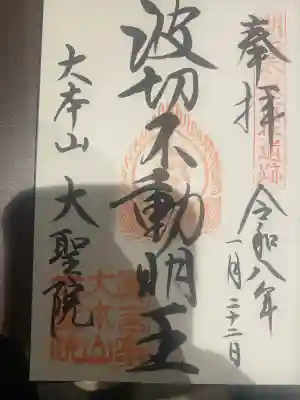 奉拝
令和八年
一月二十二日
波切不動明王
大本山 大聖院